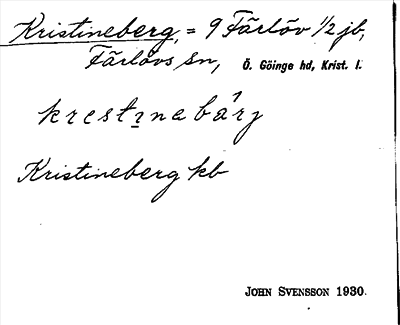 Kristineberg, = 9 Färlöv 1/2 jb,
Färlövs sn, Ö. Göinge hd, Krist. l.
krestɪnebárj
Kristineberg kb
JOHN SVENSSON 1930.